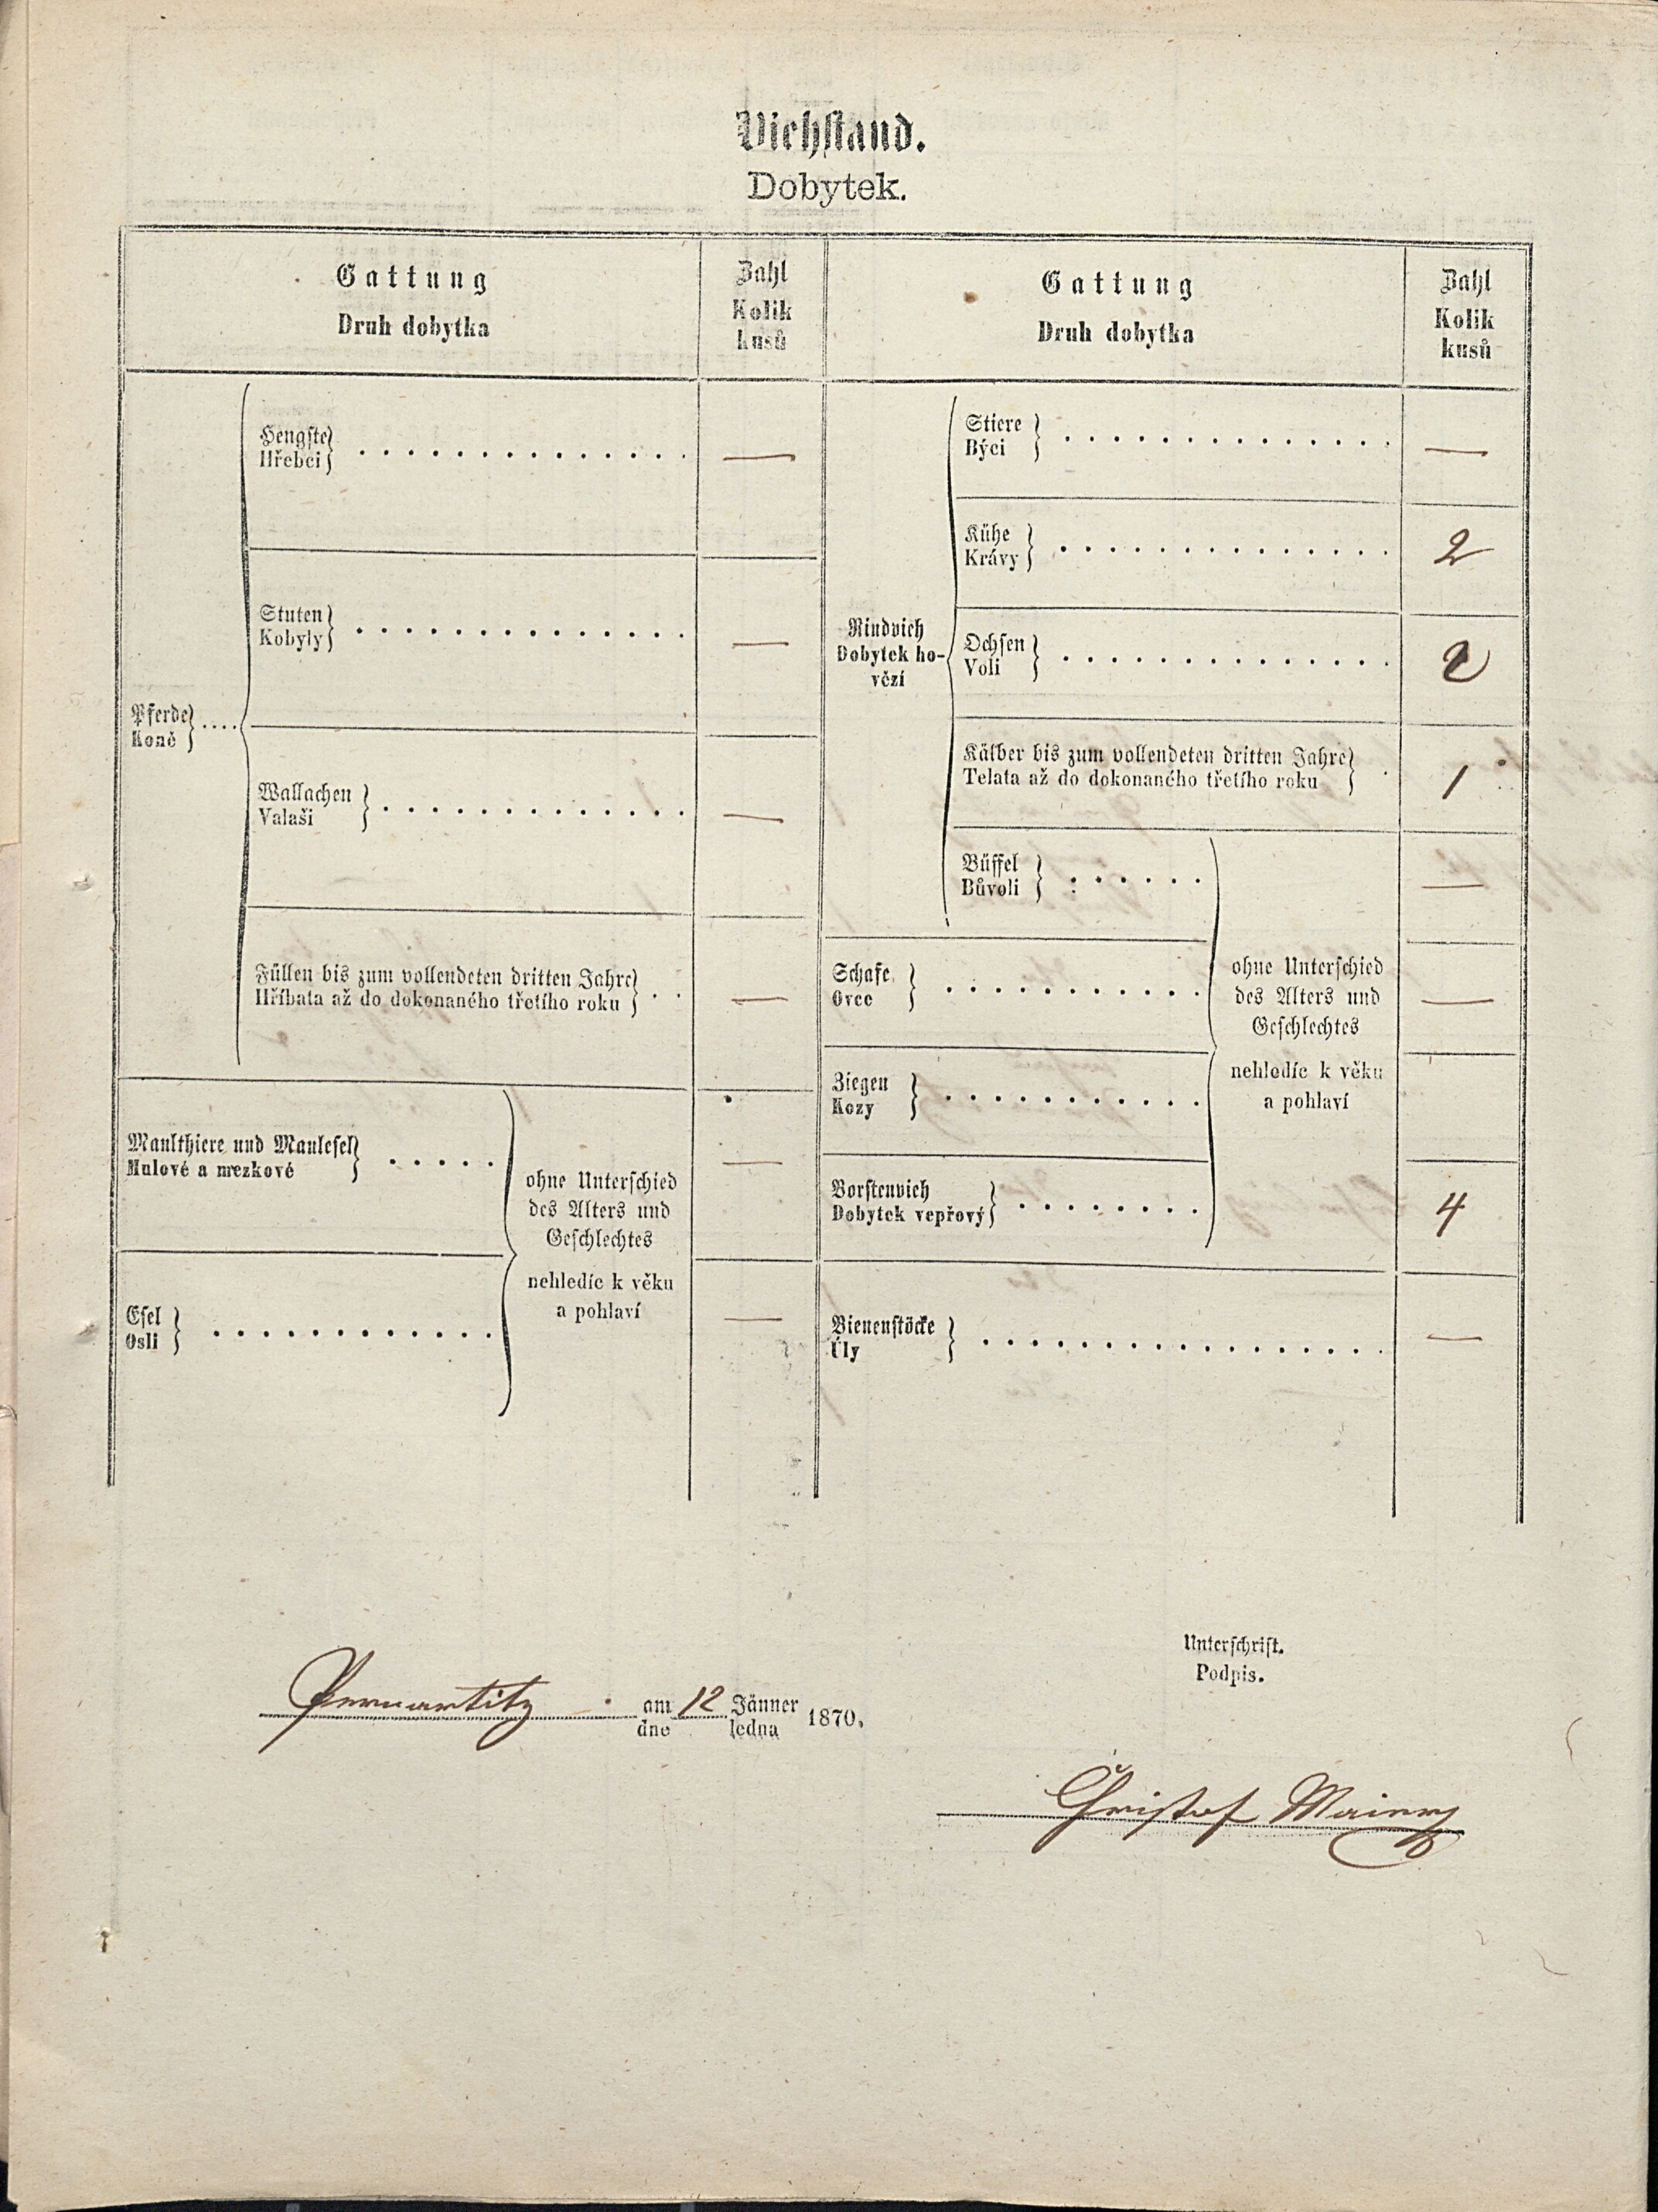 Viehstand.
Dobytek.
Gattung
Druh dobytka
Zahl
Kolik
kusů
Gattung
Druh dobytka
Zahl
Kolik
kusů
Pferde
Koně
Hengste
Hřebci
—
Stuten
Kobyly
—
Wallachen
Valaši
—
Füllen bis zum vollendeten dritten Jahre
Hříbata až do dokonaného třetího roku
—
Maulthiere und Maulesel
Mulové a mezkové
—
Esel
Osli
—
ohne Unterschied
des Alters und
Geschlechtes
nehledíc k věku
a pohlaví
Rindvieh
Dobytek ho-
vězí
Stiere
Býci
—
Kühe
Krávy
2
Ochsen
Voli
2
Kälber bis zum vollendeten dritten Jahre
Telata až do dokonaného třetího roku
1
Büffel
Bůvoli
—
Schafe
Ovce
—
Ziegen
Kozy
Borstenvieh
Dobytek vepřový
4
ohne Unterschied
des Alters und
Geschlechtes
nehledíc k věku
a pohlaví
Bienenstöcke
Úly
—
Unterschrift.
Podpis.
Pernartitz am 12 Jänner 1870.
dne ledna
Christof Maier